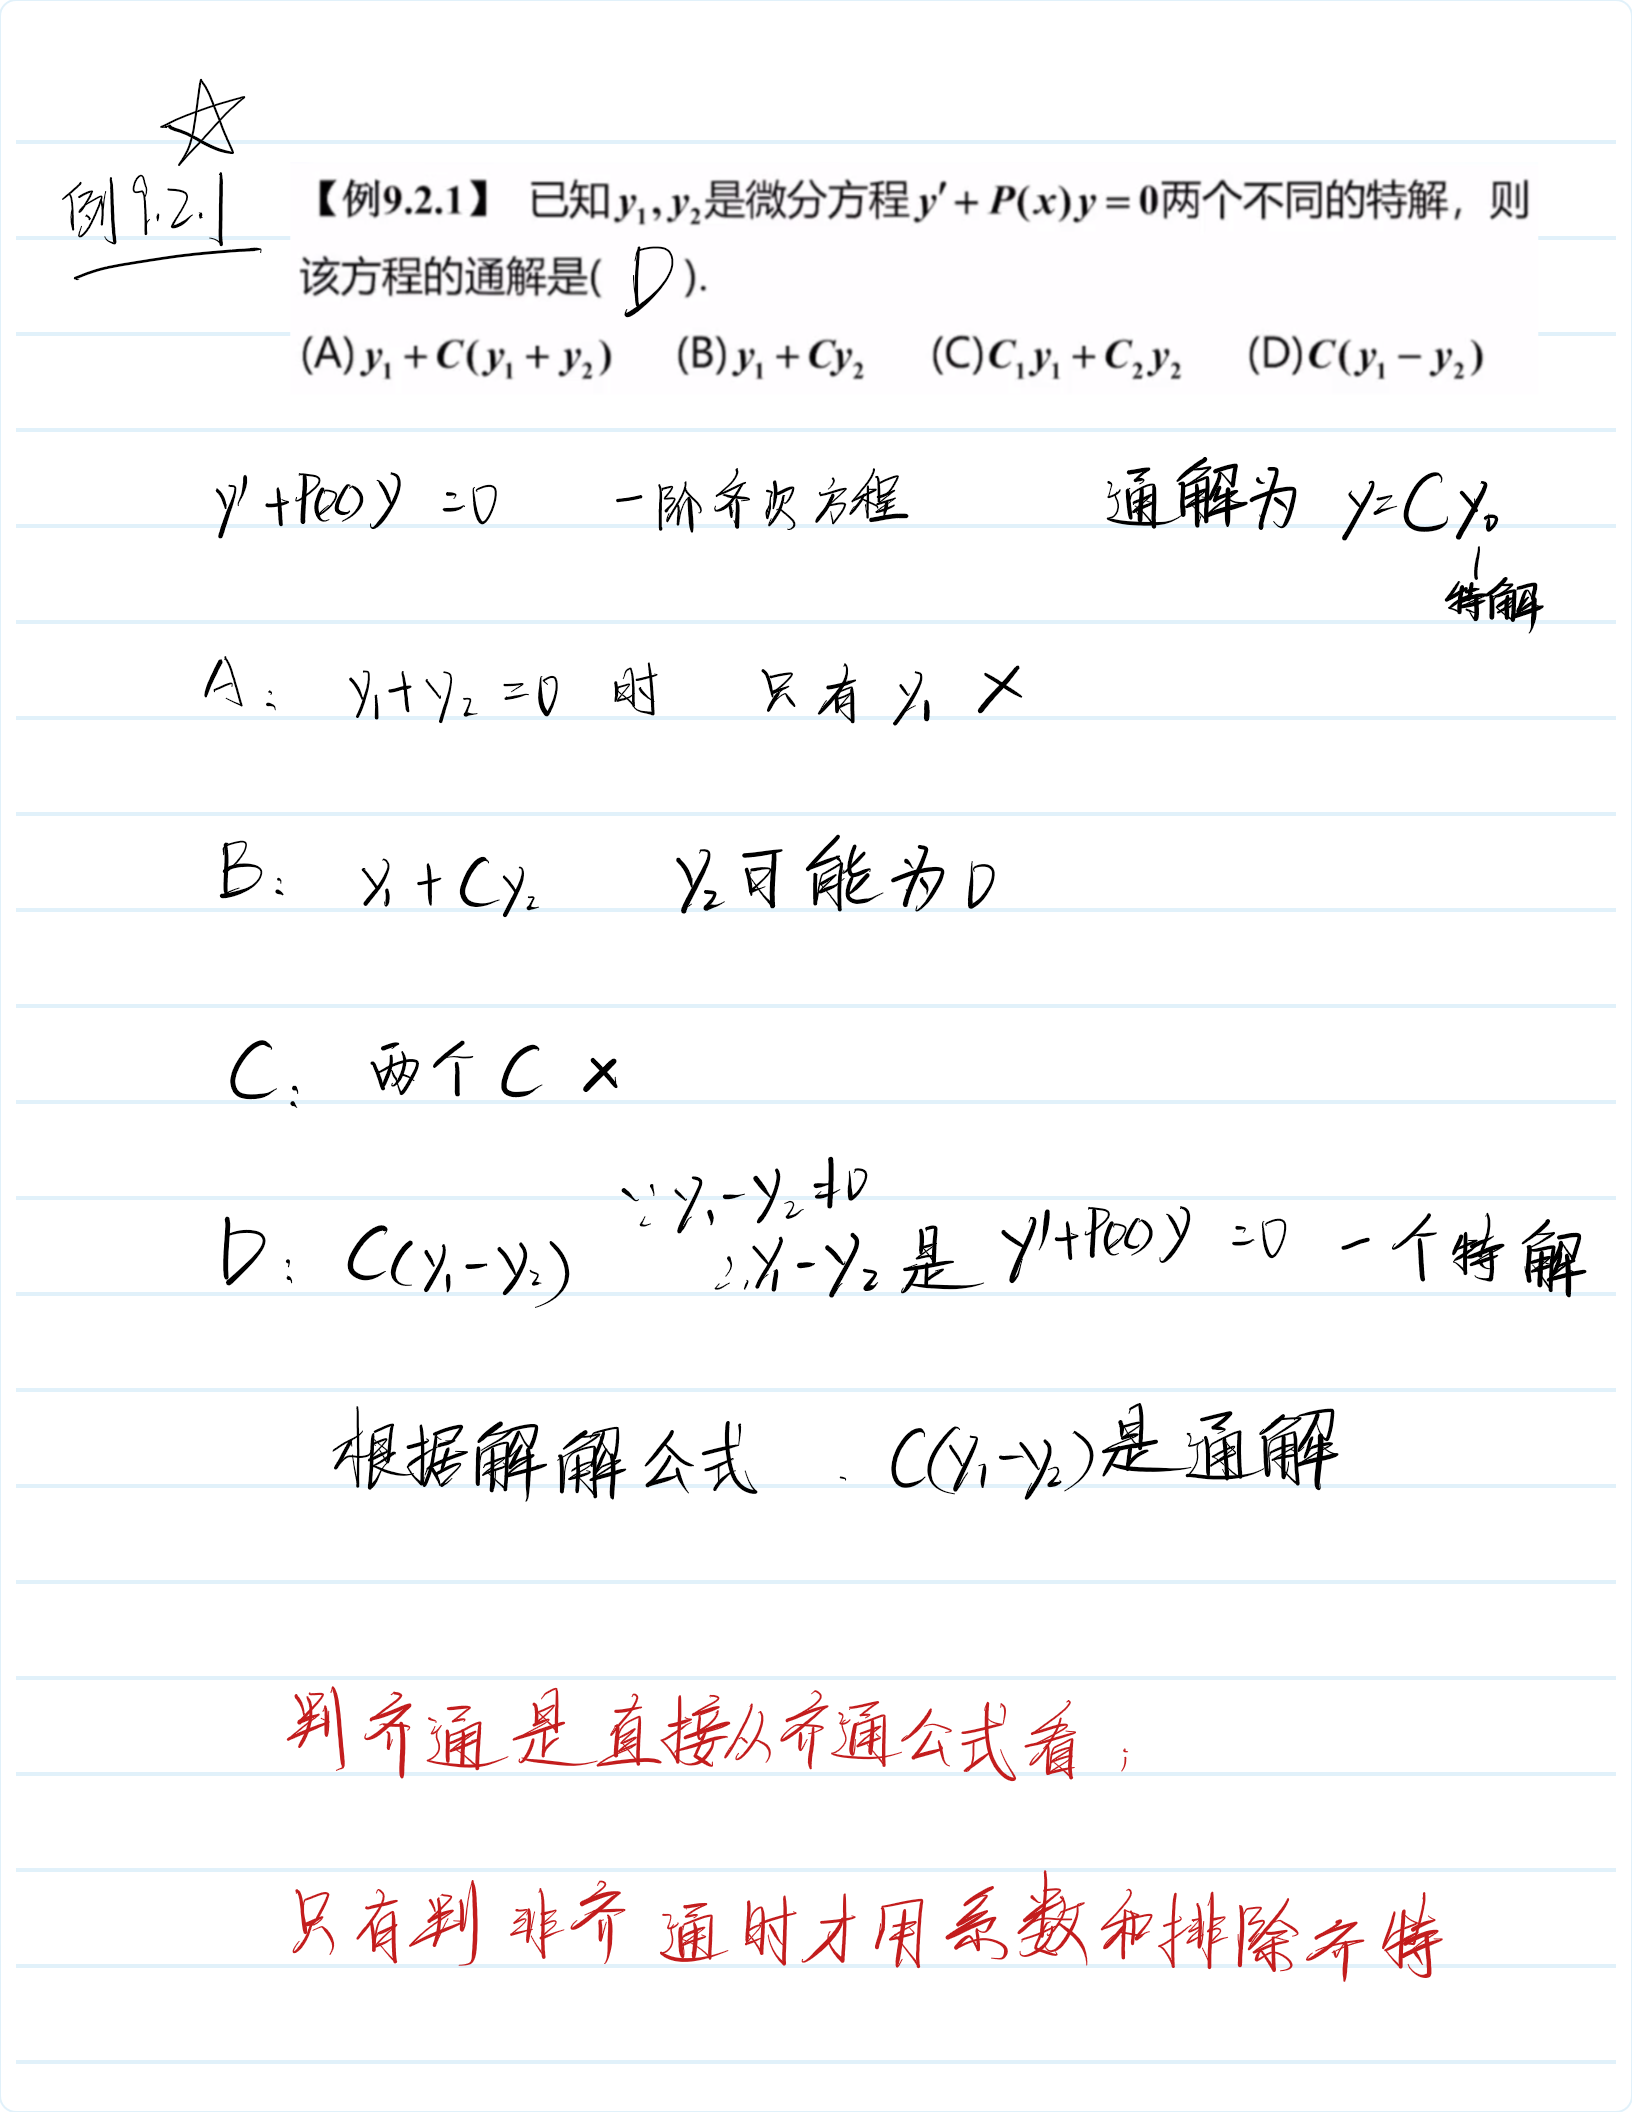 例9.2.1
【例9.2.1】 已知y₁,y₂是微分方程y′+P(x)y=0两个不同的特解，则
该方程的通解是( D ).
(A)y₁+C(y₁+y₂) (B)y₁+Cy₂ (C)C₁y₁+C₂y₂ (D)C(y₁−y₂)
y′+P(x)y=0 一阶齐次方程 通解为 y=Cy₀
特解
A: y₁+y₂=0 时 只有 y₁ ×
B: y₁+Cy₂ y₂可能为0
C: 两个C ×
∵y₁−y₂≠0
D: C(y₁−y₂) ∴y₁−y₂是 y′+P(x)y=0 一个特解
根据解解公式 . C(y₁−y₂)是通解
判齐通是直接从齐通公式看;
只有判非齐通时才用系数和排除齐特